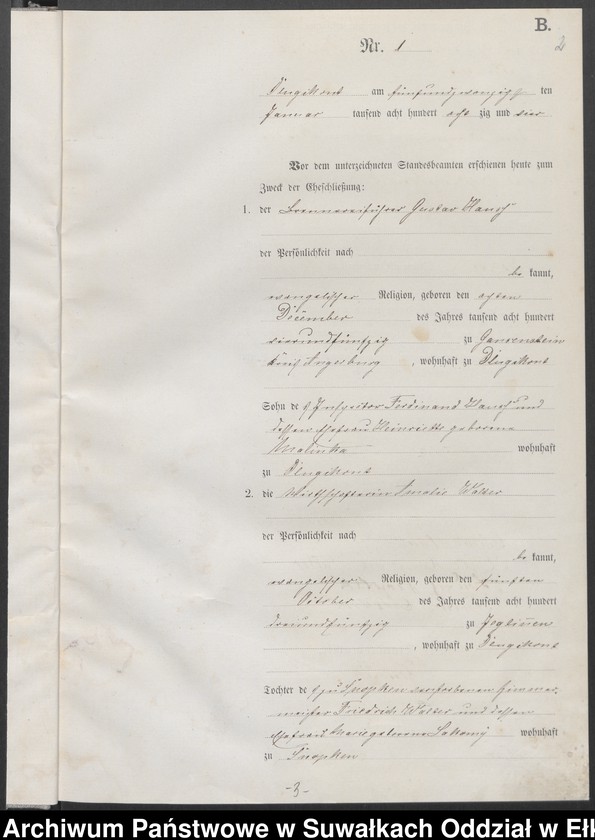 B.
2
Nr. 1
am fünfundzwanzigsten
Januar tausend acht hundert acht zig und vier
Vor dem unterzeichneten Standesbeamten erschienen heute zum
Zweck der Eheschließung:
1. der Brennereiführer Gustav
der Persönlichkeit nach
be kannt,
evangelischer Religion, geboren den achten
December des Jahres tausend acht hundert
vierundfünfzig zu
Kreis Angerburg, wohnhaft zu
Sohn des Inspector Ferdinand und
dessen Ehefrau Heinriette geborene
wohnhaft
zu
2. die Wirthschafterin Amalie Walter
der Persönlichkeit nach
be kannt,
evangelischer Religion, geboren den fünften
October des Jahres tausend acht hundert
dreiundfünfzig zu
, wohnhaft zu
Tochter des zu verstorbenen Zimmer-
meister Friedrich Walter und dessen
Ehefrau Marie geborene wohnhaft
zu
-3-
Archiwum Państwowe w Suwałkach Oddział w Eł